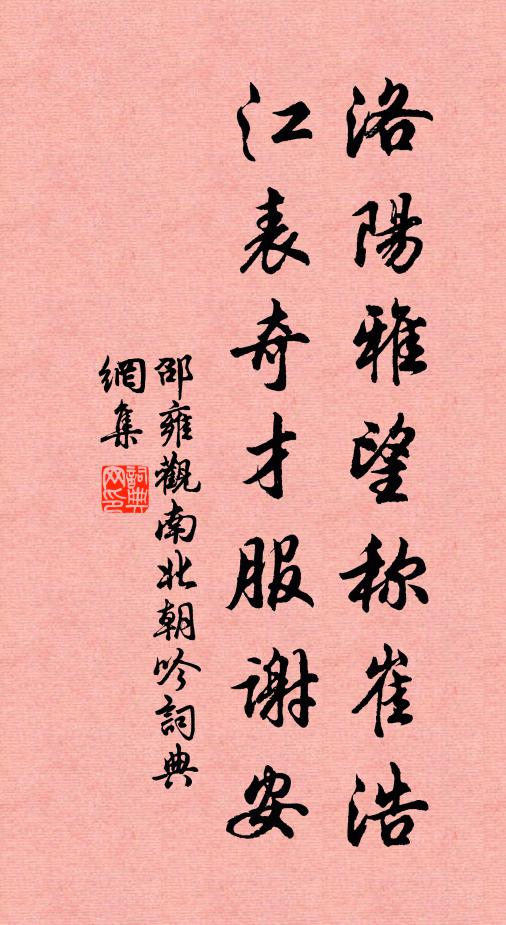 洛陽雅望称崔浩
江表奇才服謝安
邵雍觀南北朝吟詞典
網集
詞典網印